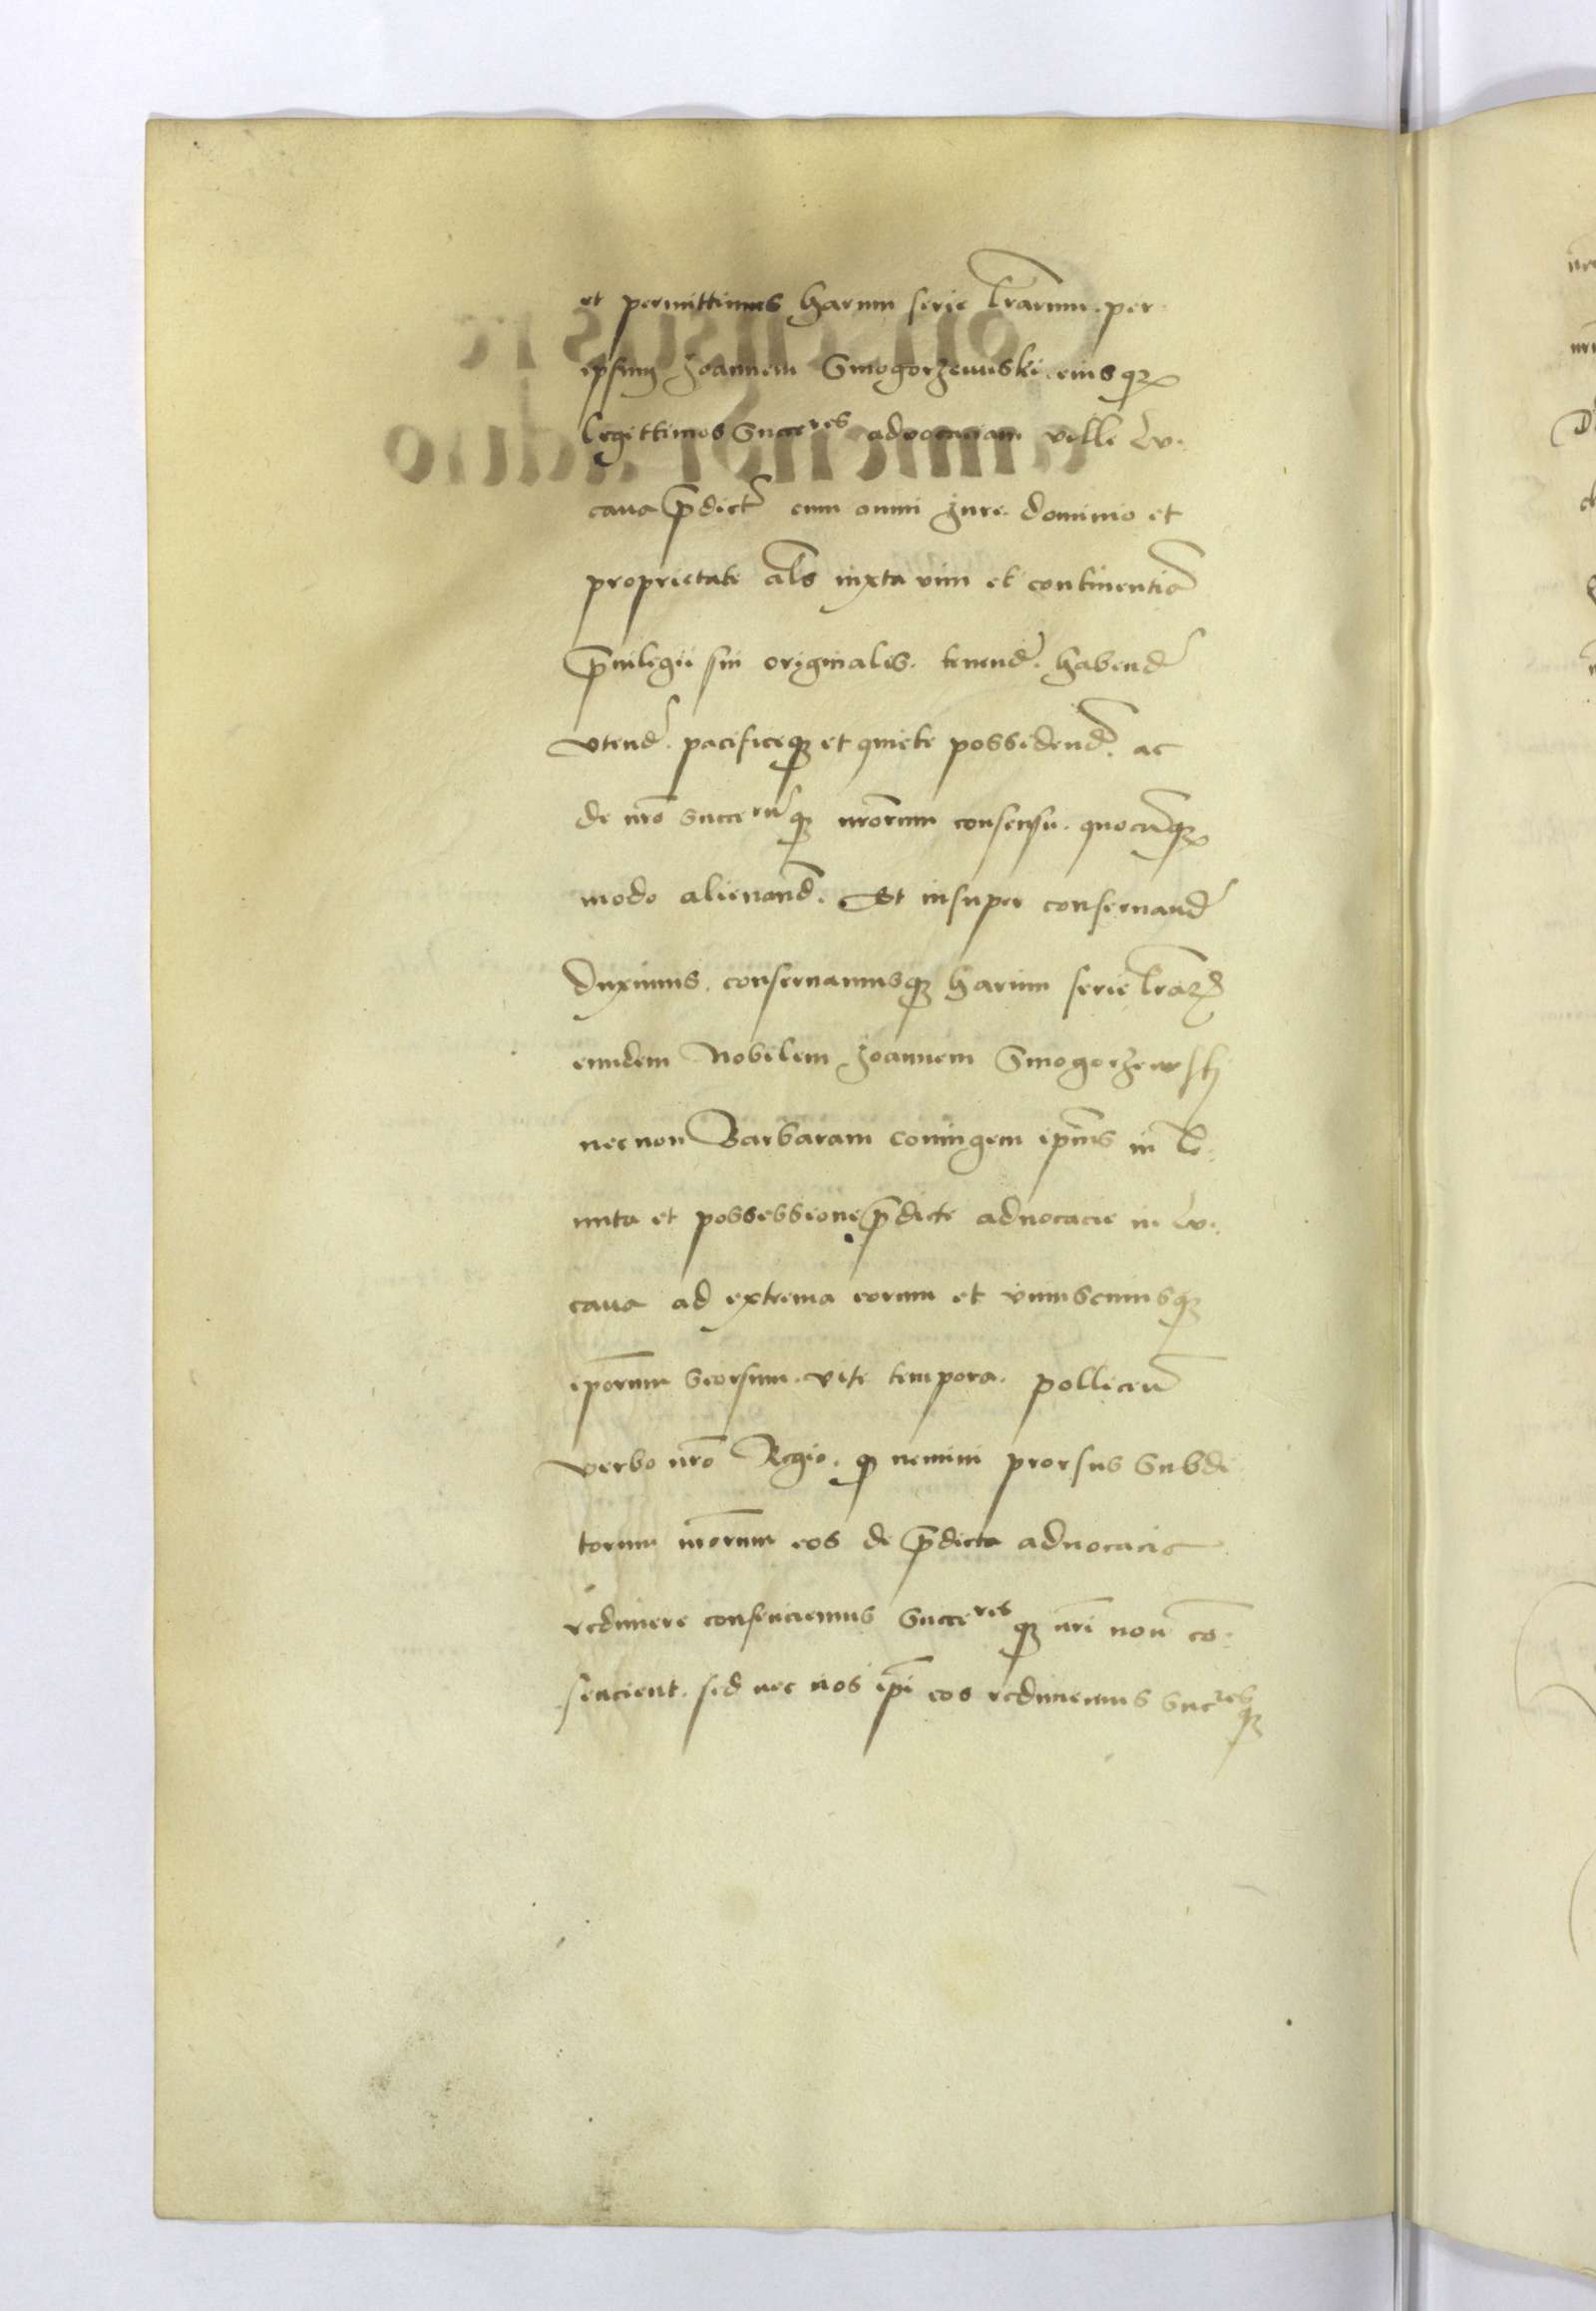 et permittimus harum serie lrarum. per
ipsum Joannem Smogorzewski eiusq3
legittimos Succeres advocaciam ville Lv.
caua pdict cum omni Jure dominio et
proprietate als iuxta vim et continentia
priuilegii sui originalis. tenend. habend
vtend. pacificeq3 et quiete possidend. ac
de nro succeruq3 nrorum consensu. quocuq3
modo alienand. Et insuper conseruand
duximus. conseruamusq3 harum serie lrar
eundem Nobilem Joannem Smogorzewskj
necnon Barbaram coniugem ipius in te.
nuta et possessione pdicte aduocacie in Lv.
caua ad extrema eorum et vniuscuiusq3
iporum seorsum. vite tempora. pollicem
verbo nro Regio. q nemini prorsus Subdi
torum nrorum eos de pdicta aduocacie
redimere consenciemus Succeresq3 nri non co.
sencient. sed nec nos ipi eos redimemus Sucresq3